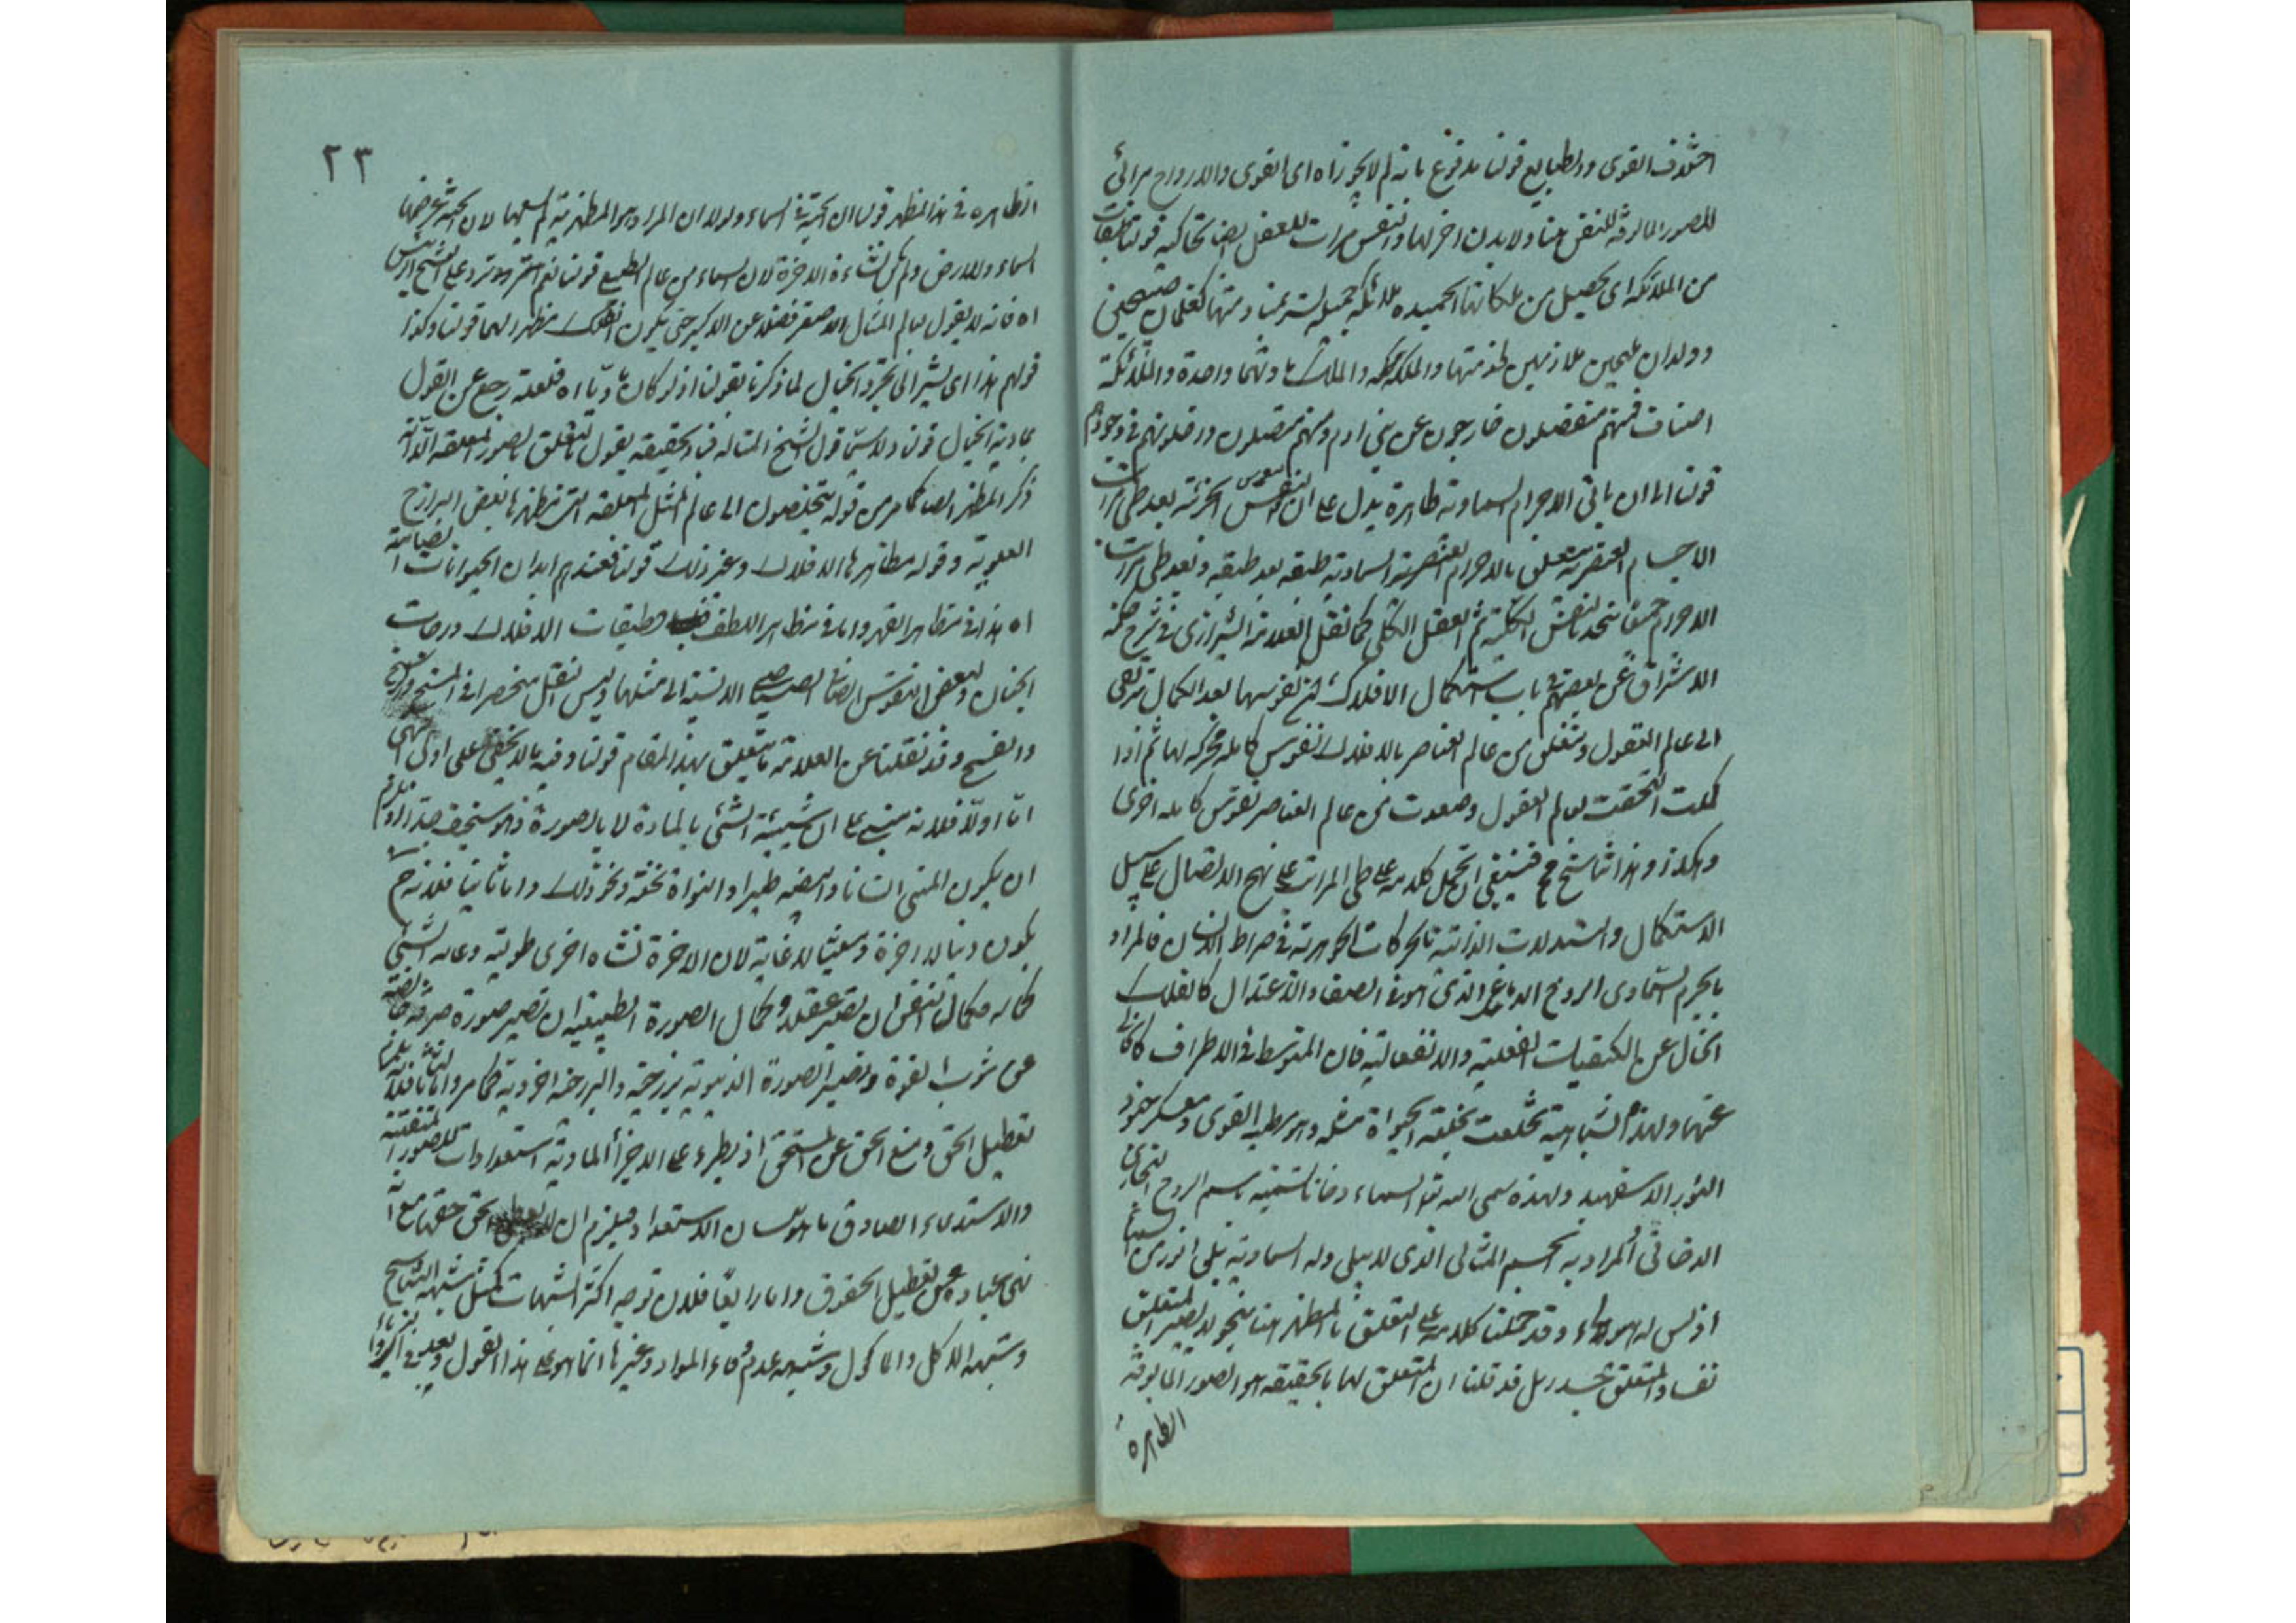 اختلاف القوى والطبايع قولنا مدفوع بانه لم لا يجوز اه اى القوى والارواح مرائى
للصور المالوفة للنفس هنا ولا بدن اخر لها والنفس مرات للعقل ايضا تحاكيه قولنا
من الملائكة اى يحصل من ملكاتها الحميده ملائكة جميلة كغلمان صبيحين
وولدان مليحين ملازمين لخدمتها والملكه والملك مادتهما واحدة والملائكة
اصناف فمنهم منفصلون خارجون عن بنى ادم ومنهم متصلون داخلون فى وجودهم
قولنا الى ان ياتى الاجرام السماوية ظاهرة يدل على ان النفوس الجزئية بعد طى مراتب
الاجسام العنصرية يتعلق بالاجرام السماوية طبقه بعد طبقه وبعد طى مراتب
الاجرام جمعا يتحد بالنفس الكلية ثم العقل الكلى كما نقل العلامة الشيرازى فى شرح حكمة
الاشراق عن بعضهم فى باب استكمال الافلاك نفوسها بعد الكمال ترتقى
الى عالم العقول ويتعلق من عالم العناصر بالافلاك نفوس كامله محركه لها ثم اذا
كملت التحقت بعالم العقول وصعدت من عالم العناصر نفوس كامله اخرى
وهكذا وهذا تناسخ فينبغى ان يحمل كلامه على طى المراتب على نهج الاتصال على سبيل
الاستكمال والتبدلات الذاتيه بالحركات الجوهرية فى صراط الانسان فالمراد
بالجرم السماوى الروح الدماغى الذى هو فى الصفا والاعتدال كالفلك
الخالى عن الكيفيات الفعلية والانفعالية فان المتوسط فى الاطراف كالخالى
عنها ولهذه المشابهة تخلعت بخلعة الحيوة مثله وهو مطية القوى ومعسكر جنود
النور الاسفهبد ولهذه سمى الله تع السماء دخانا تسميته باسم الروح البخارى
الدخانى او المراد به الجسم المثالى الذى لا يبلى وله السماوية
اذ ليس له هيولى وقد حملنا كلامه على التعلق بالمظهر هنا بنحو لا يصير المتعلق
نفسا والمتعلق جسدا بل قد قلنا ان المتعلق لها بالحقيقة هو الصور المالوفة
الظاهرة
٢٣
الظاهرة فى هذا المظهر قولنا ان الجنة فى السماء ولولا ان المراد هو المظهرية لم يسعها لان الجنة عرضها
السماء والارض ولم يكن نشاءة الاخرة لان السماء من عالم الطبيع قولنا نعم على الشيخ الرئيس
اه فانه لا يقول بعالم المثال الاصغر فضلا عن الاكبر حتى يكون الفلك مظهرا لهما قولنا وكذا
قولهم هذا اى يشير الى تجرد الخيال لما ذكرنا بقولنا اذ لو كان ماديا اه فلعله رجع عن القول
بمادية الخيال قولنا ولا سيما قول الشيخ المتاله فبالحقيقة يقول بالتعلق بالصور المعلقه الا انه
ذكر المظهر ايضا كما مر من قوله يتخلصون الى عالم المثل المعلقه التى مظهرها بعض البرازخ
العلوية وقوله مظاهرها الافلاك وغير ذلك قولنا فعندهم ابدان الحيوانات الصياصية
اه هذا فى مظاهر القهر واما فى مظاهر اللطف فطبقات الافلاك درجات
الجنان ولبعض النفوس ايضا الصياصى الانسية الى مثلها وليس النقل منحصرا فى المسخ
والفسخ وقد نقلنا عن العلامة ما يتعلق بهذا المقام قولنا وفيه ما لا يخفى على اولى النهى
اما اولا فلانه مبنى على ان شيئية الشئ بالمادة لا بالصورة وهو سخيف جدا
ان يكون المنى انسانا والبيضه طيرا والنواة نخلة ونحو ذلك واما ثانيا فلانه ح
يكون دنيا لا اخرة وسعيا لا غاية لان الاخرة نشاه اخرى طولية وغاية الشئ
كماله وكمال النفس ان تصير عقلا وكمال الصورة الطبيعية ان تصير صورة صرفه خالصة
عن شوب القوة وتصير الصورة الدنيوية برزخية والبرزخية اخروية كما مر واما ثالثا فلانه يلزم
تعطيل الحق ومنع الحق عن المستحق اذ يطرء على الاجزاء المادية استعدادات للصور
والاستدعاء الصادق ما هو بلسان الاستعداد فيلزم ان لا يعطى الحق حقها مع انه
نهى عباده عن تعطيل الحقوق واما رابعا فلان توجه اكثر الشبهات كمثل شبهة التناسخ
وشبهة الاكل والماكول وشبهة عدم وفاء المواد وغيرها انما هو على هذا القول